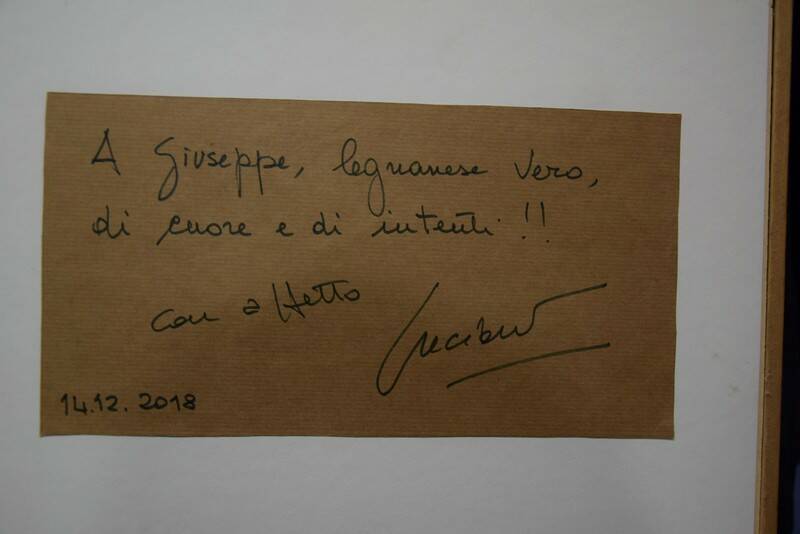 A Giuseppe, legnanese vero,
di cuore e di intenti!!
con affetto
Luciano
14.12.2018